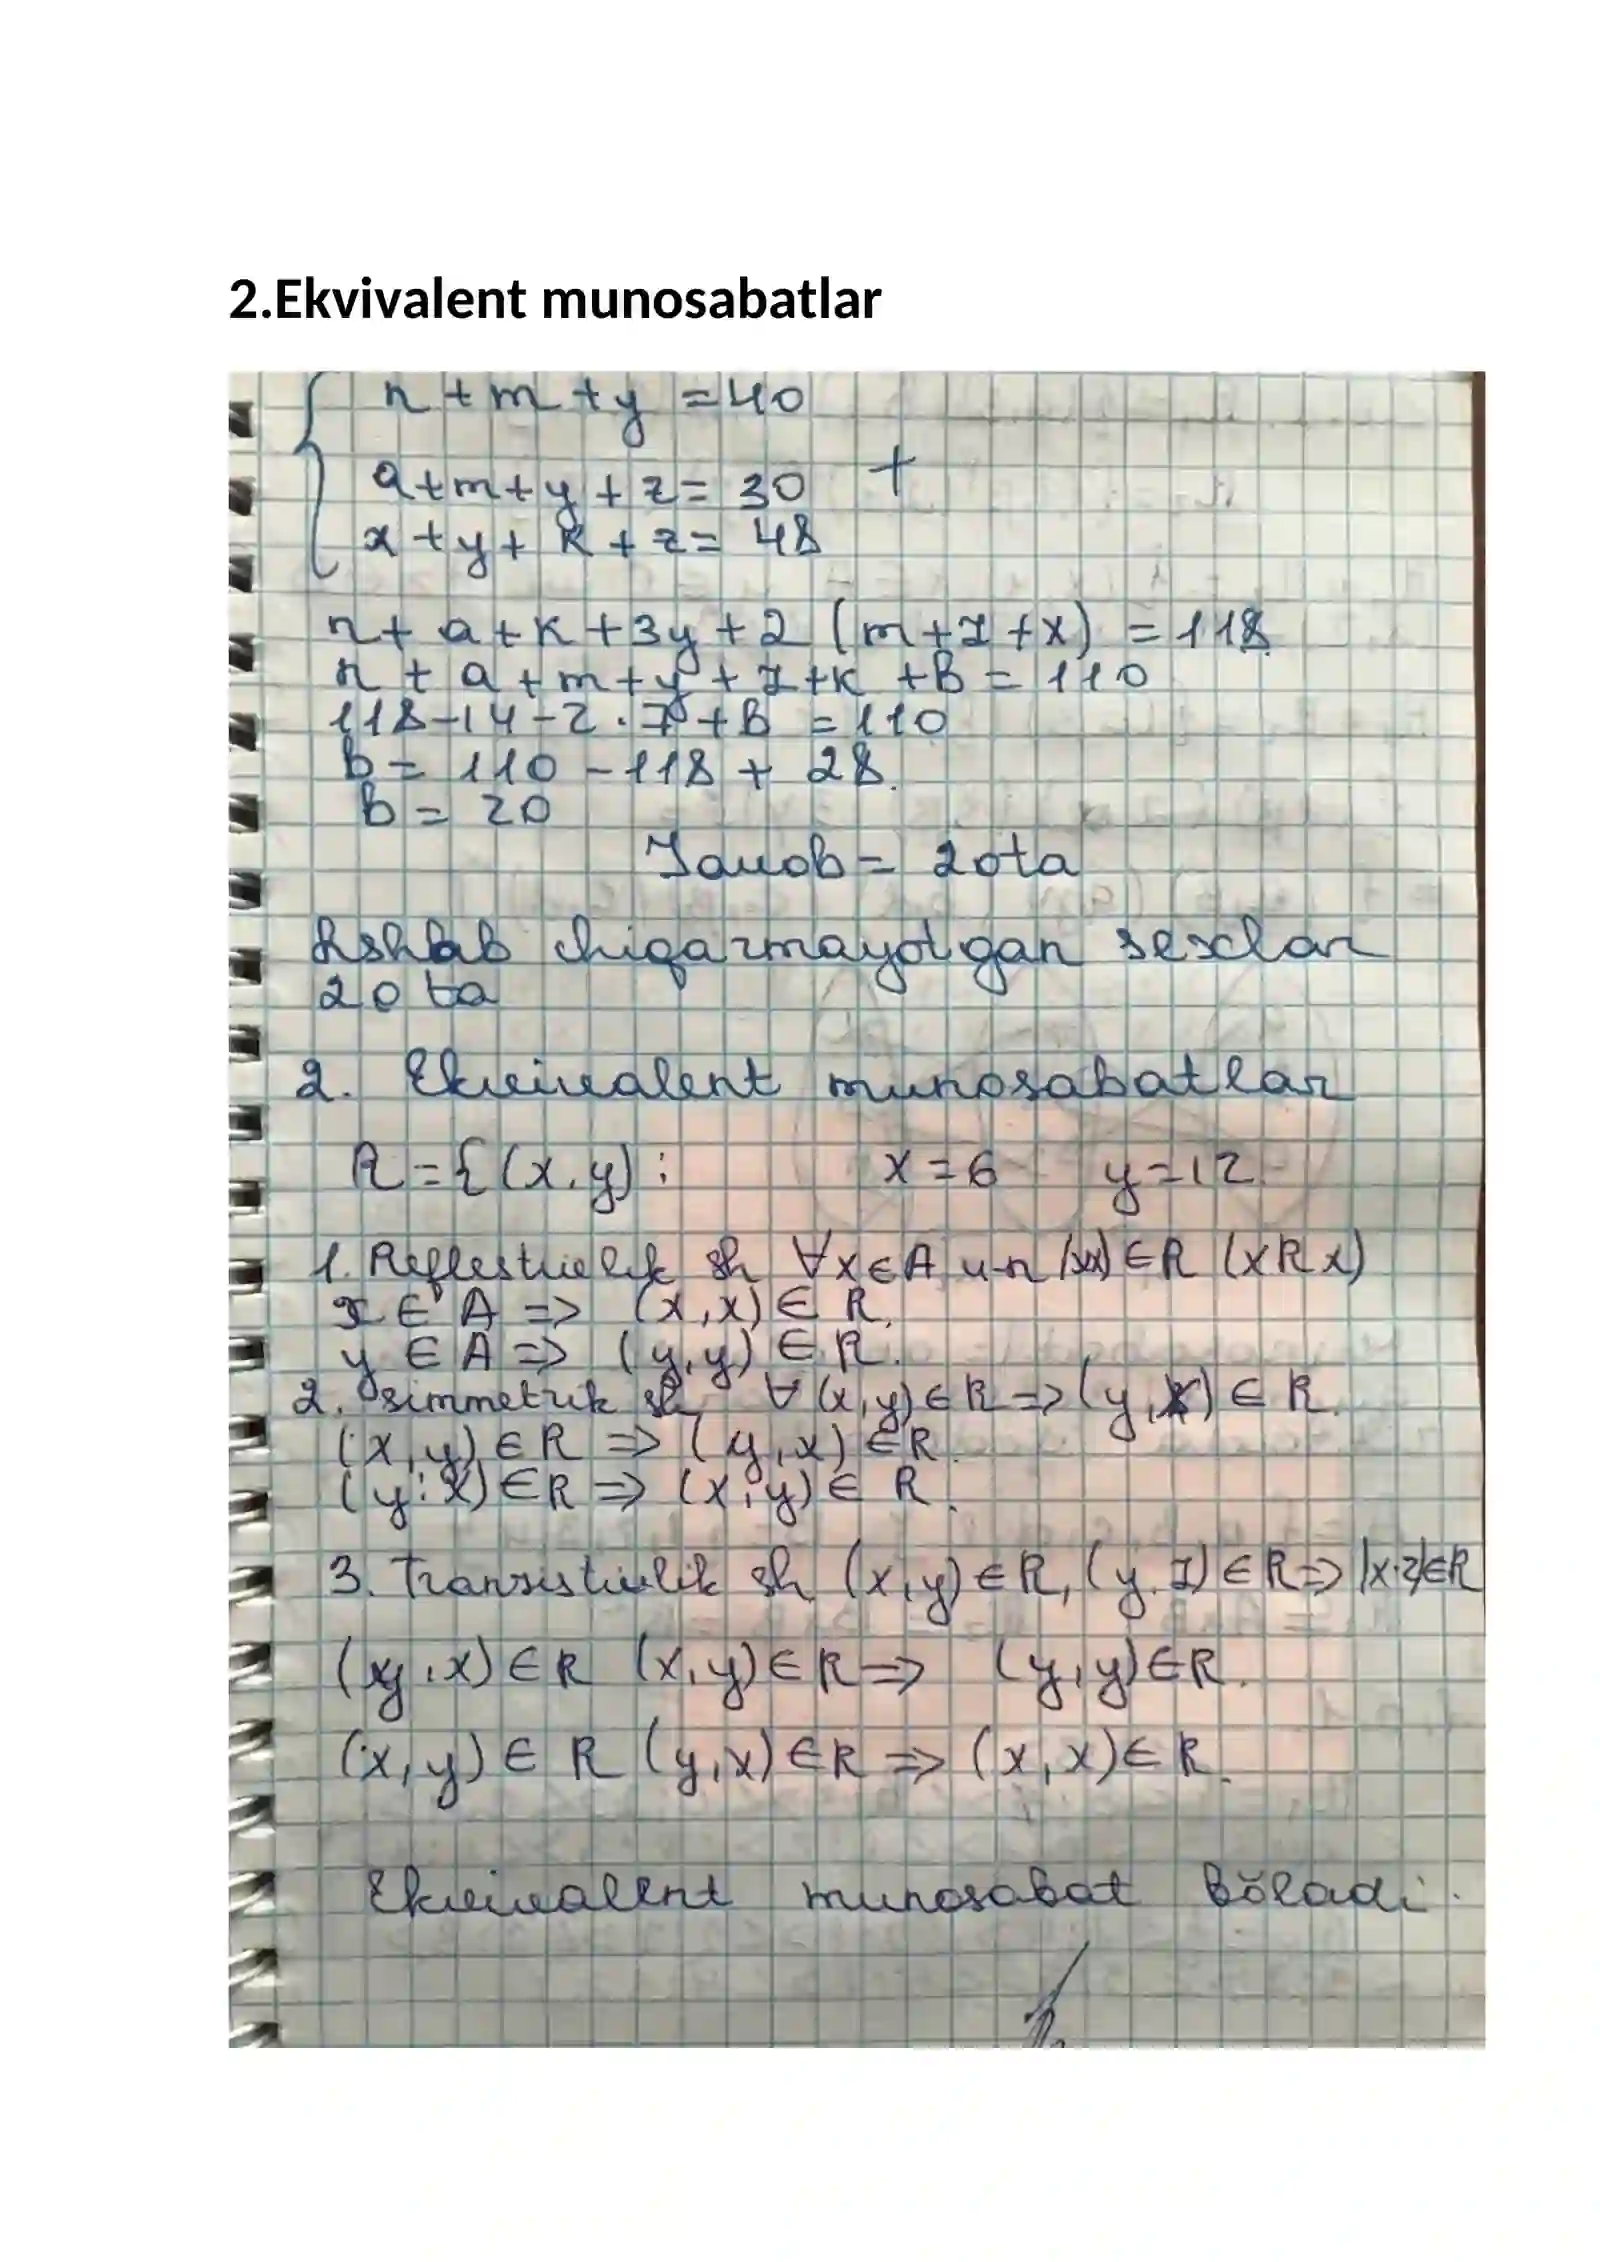 2.Ekvivalent munosabatlar
n+m+y=40
a+m+y+z=30 +
x+y+k+z=48
n+a+k+3y+2(m+z+x)=118
n+a+m+y+z+k+B=110
118-14-2·7+B=110
b=110-118+28.
b=20
Javob=20ta
Ishlab chiqarmayotgan sexlar
20 ta
2. Ekvivalent munosabatlar
R={(x,y): x=6 y=12
1. Reflestivlik sh ∀x∈A u-n (x,x)∈R (xRx)
x∈A => (x,x)∈R.
y∈A => (y,y)∈R.
2. simmetrik sh ∀(x,y)∈R=>(y,x)∈R.
(x,y)∈R => (y,x)∈R.
(y,x)∈R => (x,y)∈R.
3. Transistivlik sh (x,y)∈R,(y,z)∈R=>(x,z)∈R
(y,x)∈R (x,y)∈R => (y,y)∈R.
(x,y)∈R (y,x)∈R => (x,x)∈R.
Ekvivalent munosabat bŏladi.